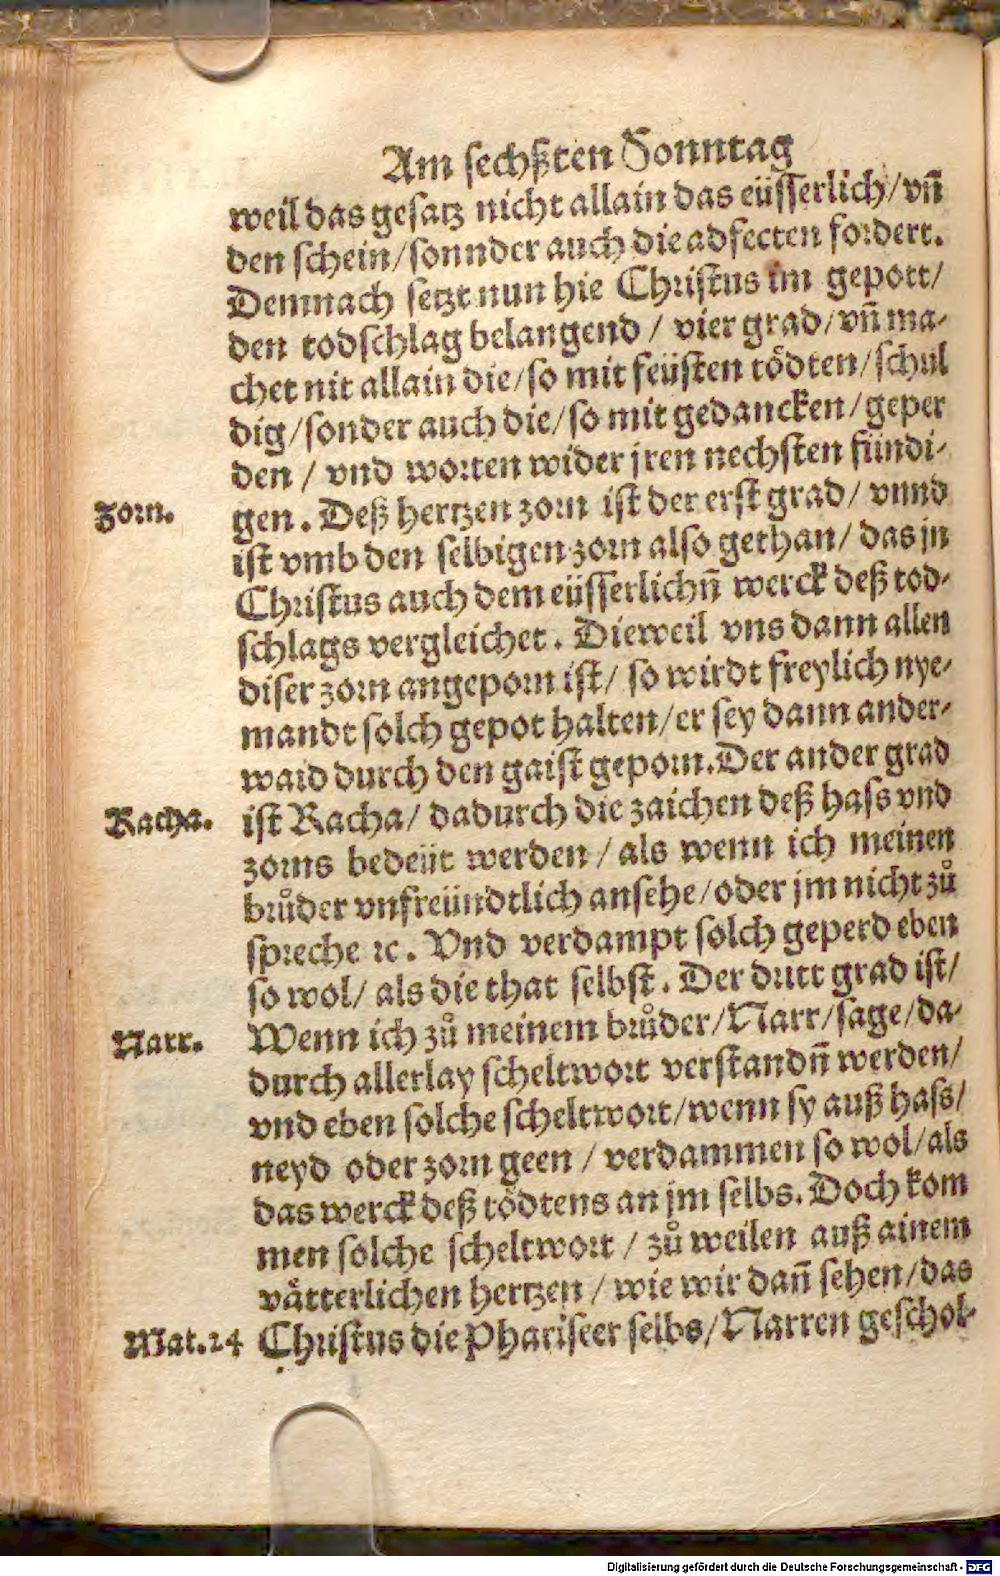 Am sechßten Sonntag
weil das gesatz nicht allain das eüsserlich/ vñ
den schein/ sonnder auch die adfecten fordert.
Demnach setzt nun hie Christus im gepott/
den todschlag belangend / vier grad/ vñ ma-
chet nit allain die/ so mit feüsten tödten/ schul
dig/ sonder auch die/ so mit gedancken/ geper
den / vnd worten wider jren nechsten sündi-
Zorn. gen. Deß hertzen zorn ist der erst grad/ vnnd
ist vmb den selbigen zorn also gethan/ das jn
Christus auch dem eüsserlichñ werck deß tod-
schlags vergleichet. Dieweil vns dann allen
diser zorn angeporn ist/ so wirdt freylich nye-
mandt solch gepot halten/ er sey dann ander-
waid durch den gaist geporn. Der ander grad
Racha. ist Racha/ dadurch die zaichen deß hass vnd
zorns bedeüt werden / als wenn ich meinen
brůder vnfreündtlich ansehe/ oder jm nicht zů
spreche ꝛc. Vnd verdampt solch geperd eben
so wol/ als die that selbst. Der dritt grad ist/
Narr. Wenn ich zů meinem brůder/ Narr/ sage/ da-
durch allerlay scheltwort verstandñ werden/
vnd eben solche scheltwort/ wenn sy auß hass/
neyd oder zorn geen / verdammen so wol/ als
das werck deß tödtens an jm selbs. Doch kom
men solche scheltwort / zů weilen auß ainem
vätterlichen hertzen / wie wir dañ sehen/ das
Mat.24 Christus die Phariseer selbs/ Narren geschol-
Digitalisierung gefördert durch die Deutsche Forschungsgemeinschaft - DFG